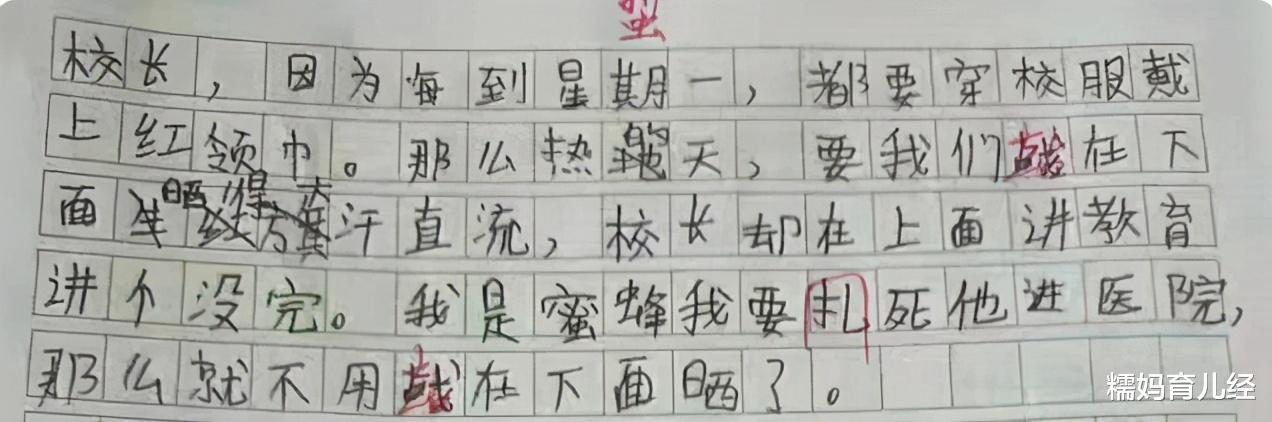 蜇
校长，因为每到星期一，都要穿校服戴
上红领巾。那么热的天，要我们站在下
面 晒得大汗直流，校长却在上面讲教育
讲个没完。我是蜜蜂我要扎死他进医院，
那么就不用站在下面晒了。
糯妈育儿经